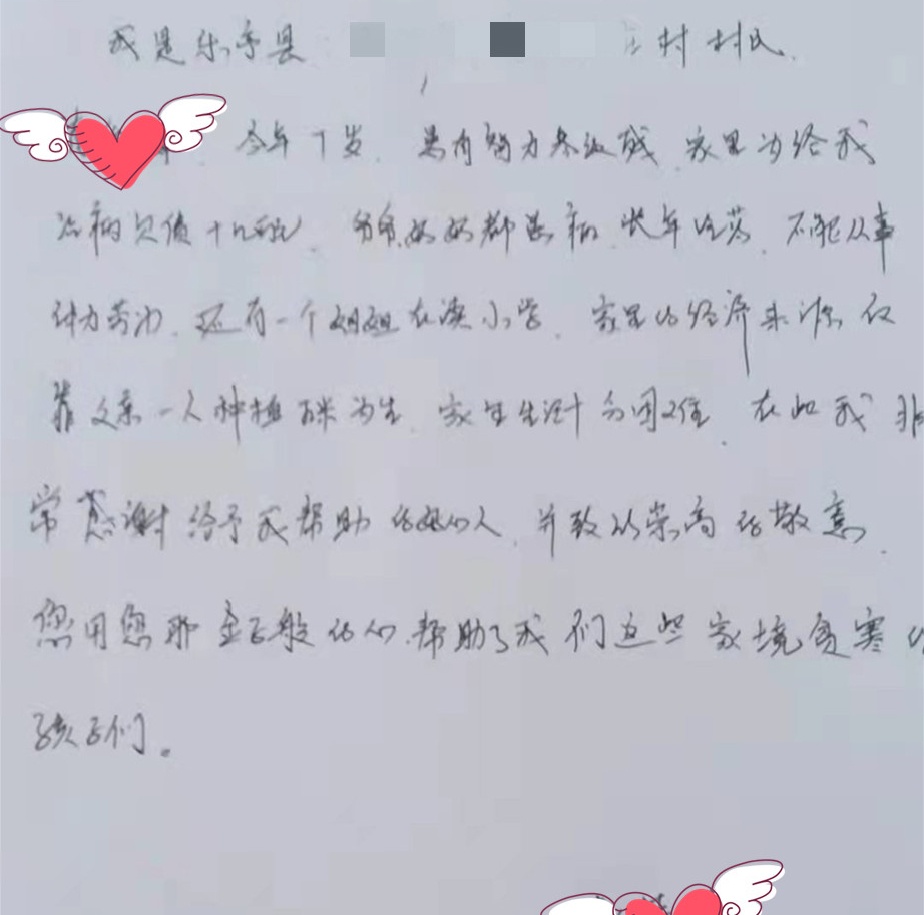 我是乐亭县 村村民.
今年7岁.患有智力叁级残.家里为给我
治病欠债十几万元.爸爸.妈妈都患病.长年吃药.不能从事
体力劳动.还有一个姐姐在读小学.家里的经济来源仅
靠父亲一人种植玉米为生.家里生活十分困难.在此我非
常感谢给予我帮助的好心人.并致以崇高的敬意.
您用您那金子般的心.帮助了我们这些家境贫寒的
孩子们。